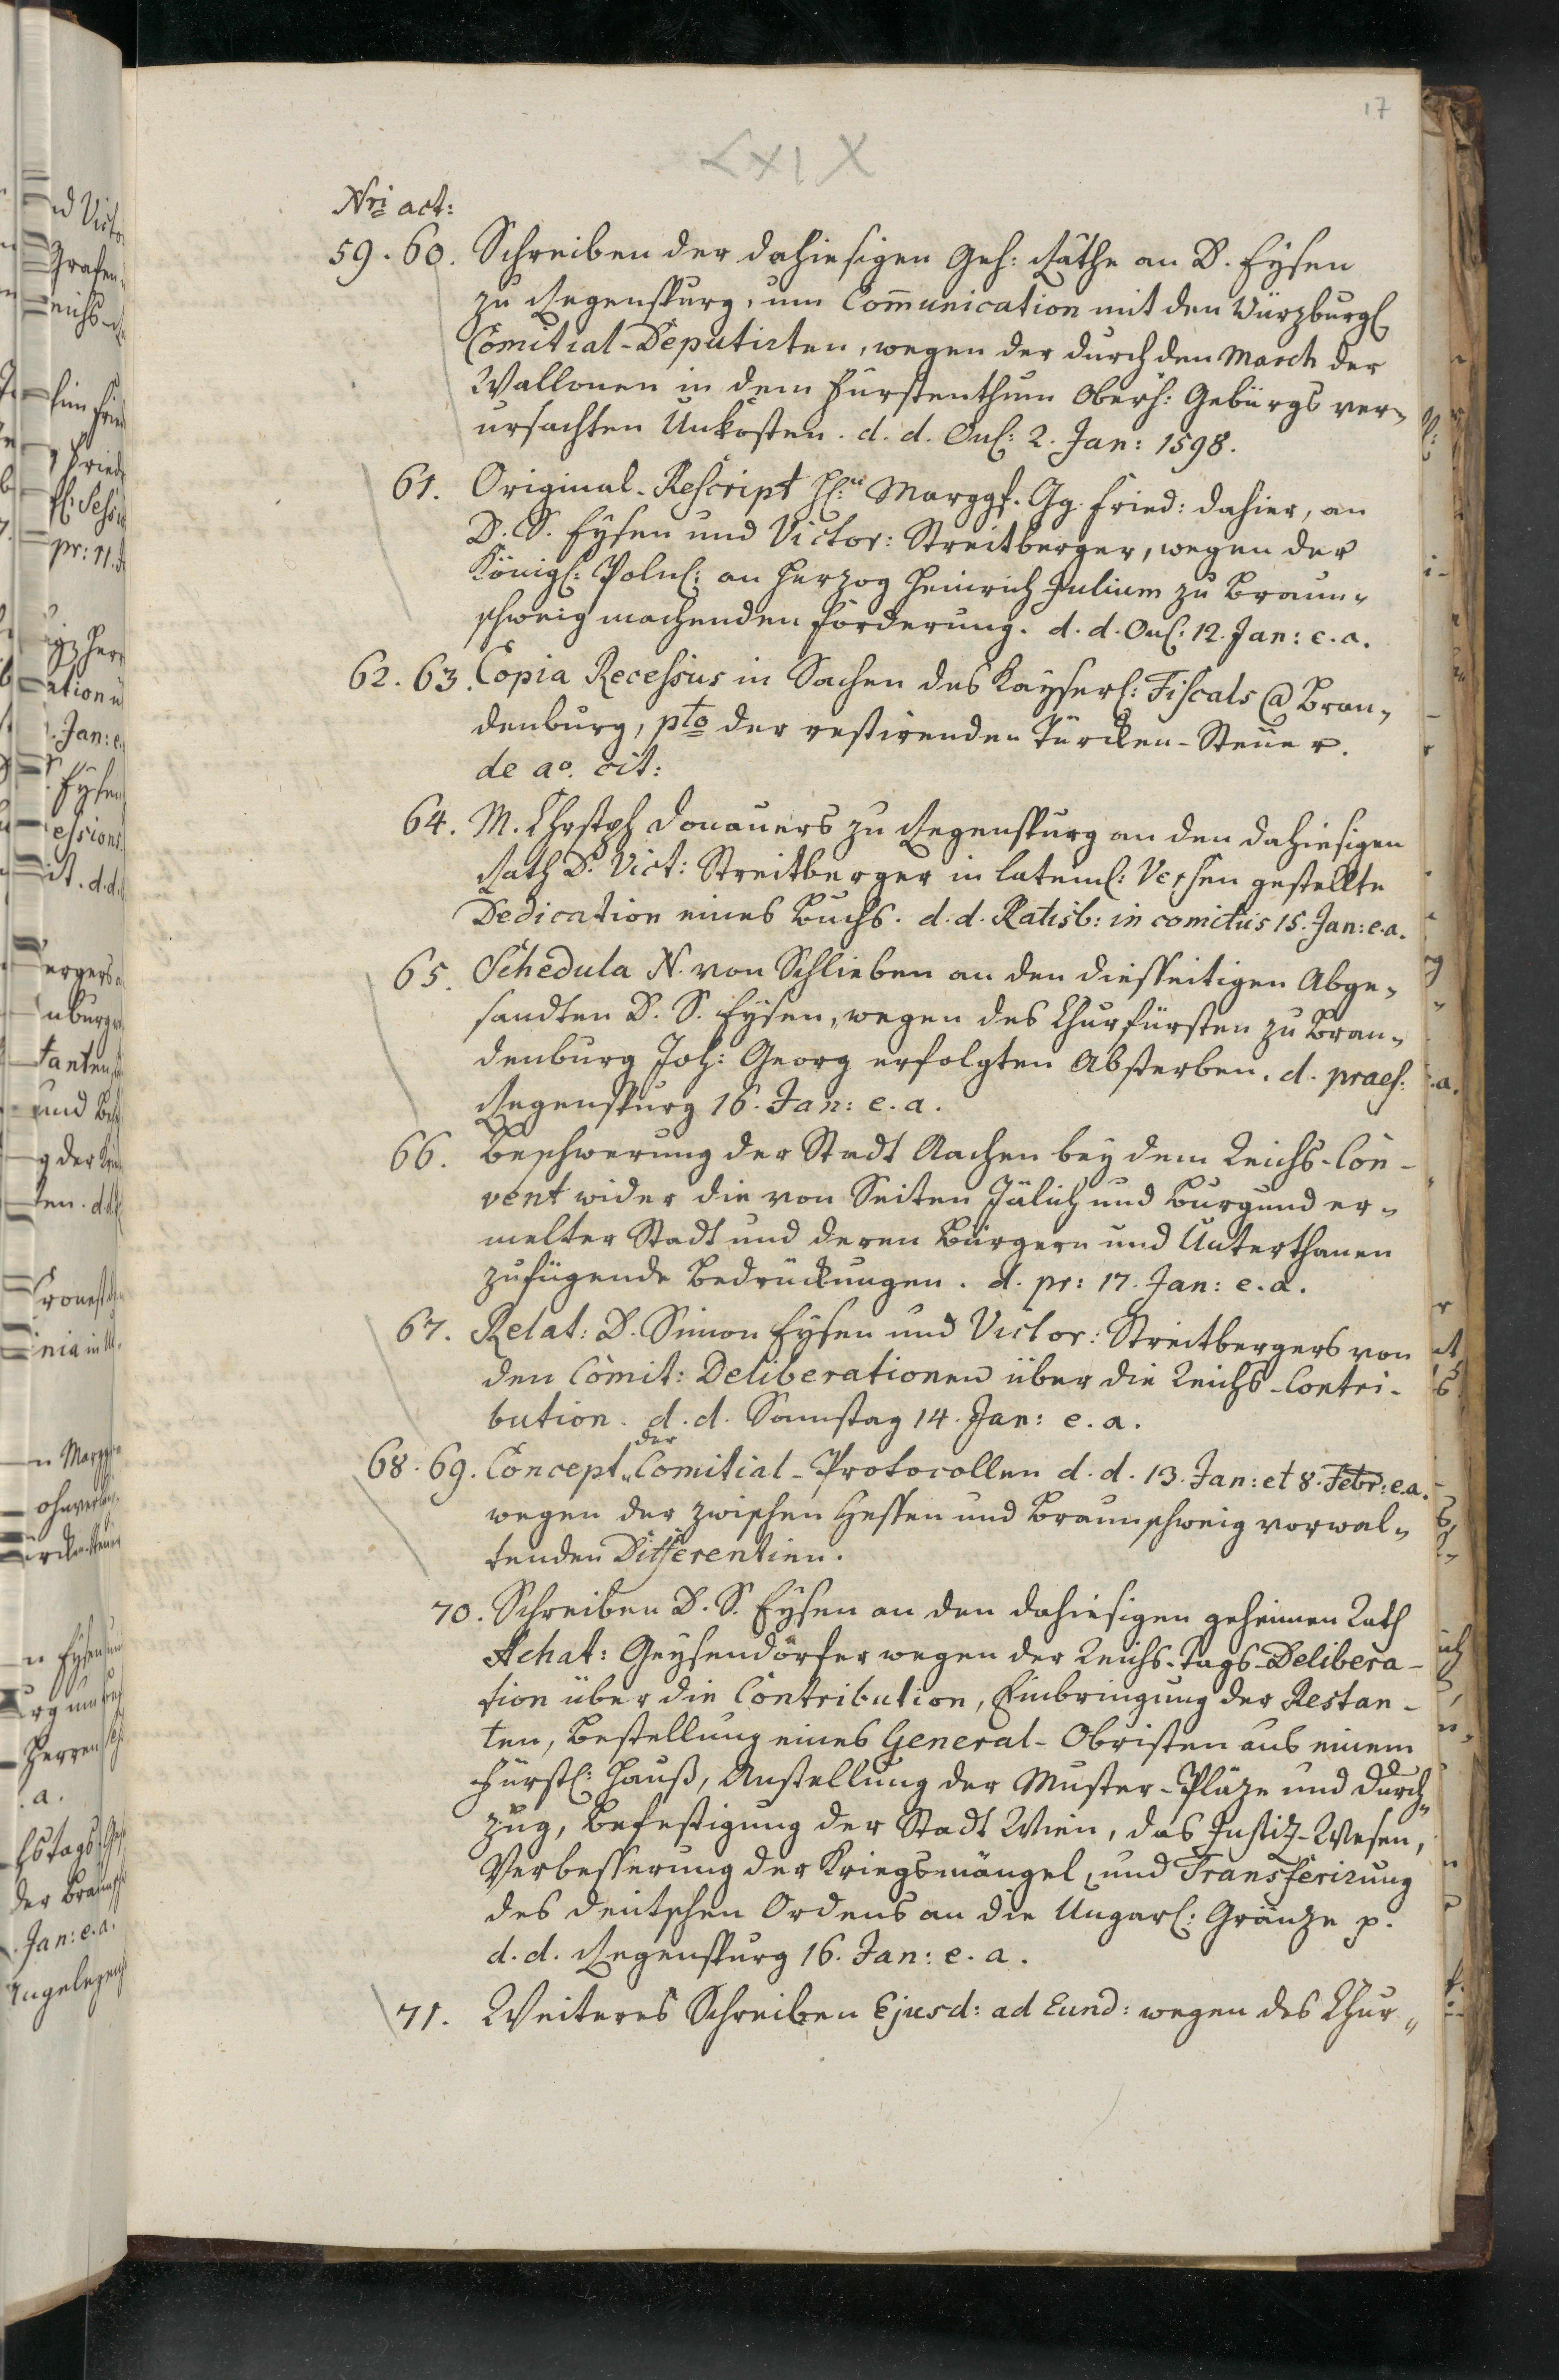 17
LXIX
Nri act:
59. 60. Schreiben der dahiesigen Geh: Räthe an D. Eysen
zu Regenspurg, um Communication mit den Würzburgl
Comitial-Deputirten, wegen der durch den March der
Wallonen in dem Fürstenthum Oberh: Gebürgs ver-
ursachten Unkosten. d. d. Onl: 2. Jan: 1598.
61. Original-Rescript Marggf. Gg. Fried: dahier, an
D. S. Eysen und Victor: Streitberger, wegen der
Königl: Polnl: an Herzog Heinrich Julium zu Braun-
schweig machenden Forderung. d. d. Onl: 12. Jan: e. a.
62. 63. Copia Recessus in Sachen des Kayserl: Fiscals @ Bran-
denburg, pto der restirenden Türcken-Steuer.
de ao. cit:
64. M. Chrstph Donauers zu Regenspurg an den dahiesigen
Rath D. Vict: Streitberger in lateinl: Versen gestellte
Dedication eines Buchs. d. d. Ratisb: in comitiis 15. Jan: e. a.
65. Schedula N. von Schlieben an den diesseitigen Abge-
sandten D. S. Eysen, wegen des Churfürsten zu Bran-
denburg Joh: Georg erfolgten Absterben. d. praes:
Regenspurg 16. Jan: e. a.
66. Beschwerung der Stadt Aachen bey dem Reichs-Con-
vent wider die von Seiten Jülich und Burgund er-
melter Stadt und deren Bürgern und Unterthanen
zufügende Bedrückungen. d. pr: 17. Jan: e. a.
67. Relat: D. Simon Eysen und Victor: Streitbergers von
den Comit: Deliberationen über die Reichs-Contri-
bution. d. d. Samstag 14. Jan: e. a.
68. 69. Concept der Comitial-Protocollen d. d. 13. Jan: et 8. Febr: e. a.
wegen der zwischen Hessen und Braunschweig vorwal-
tenden Differentien.
70. Schreiben D. S. Eysen an den dahiesigen geheimen Rath
Achat: Geysendörfer wegen der Reichs-Tags-Delibera-
tion über die Contribution, Einbringung der Restan-
ten, Bestellung eines General-Obristen aus einem
Fürstl: Hauß, Anstellung der Muster-Pläze und Durch-
zug, Befestigung der Stadt Wien, das Justiz-Wesen,
Verbesserung der Kriegsmängel, und Transferirung
des deutschen Ordens an die Ungarl: Gränze p.
d. d. Regenspurg 16. Jan: e. a.
71. Weiteres Schreiben Ejusd: ad Eund: wegen des Chur-